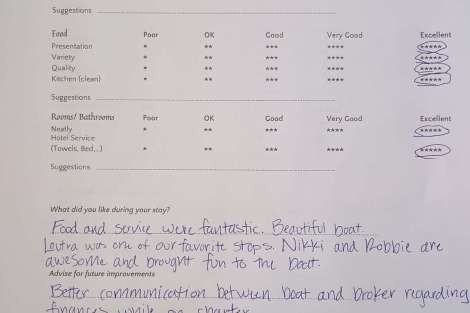 Suggestions
Food Poor OK Good Very Good Excellent
Presentation * ** *** **** *****
Variety * ** *** **** *****
Quality * ** *** **** *****
Kitchen (clean) * ** *** **** *****
Suggestions
Rooms/ Bathrooms Poor OK Good Very Good Excellent
Neatly * ** *** **** *****
Hotel Service
(Towels, Bed,..) * ** *** **** *****
Suggestions
What did you like during your stay?
Food and service were fantastic. Beautiful boat.
Loutra was one of our favorite stops. Nikki and Robbie are
awesome and brought fun to the boat.
Advise for future improvements
Better communication between boat and broker regarding
finances while on charter